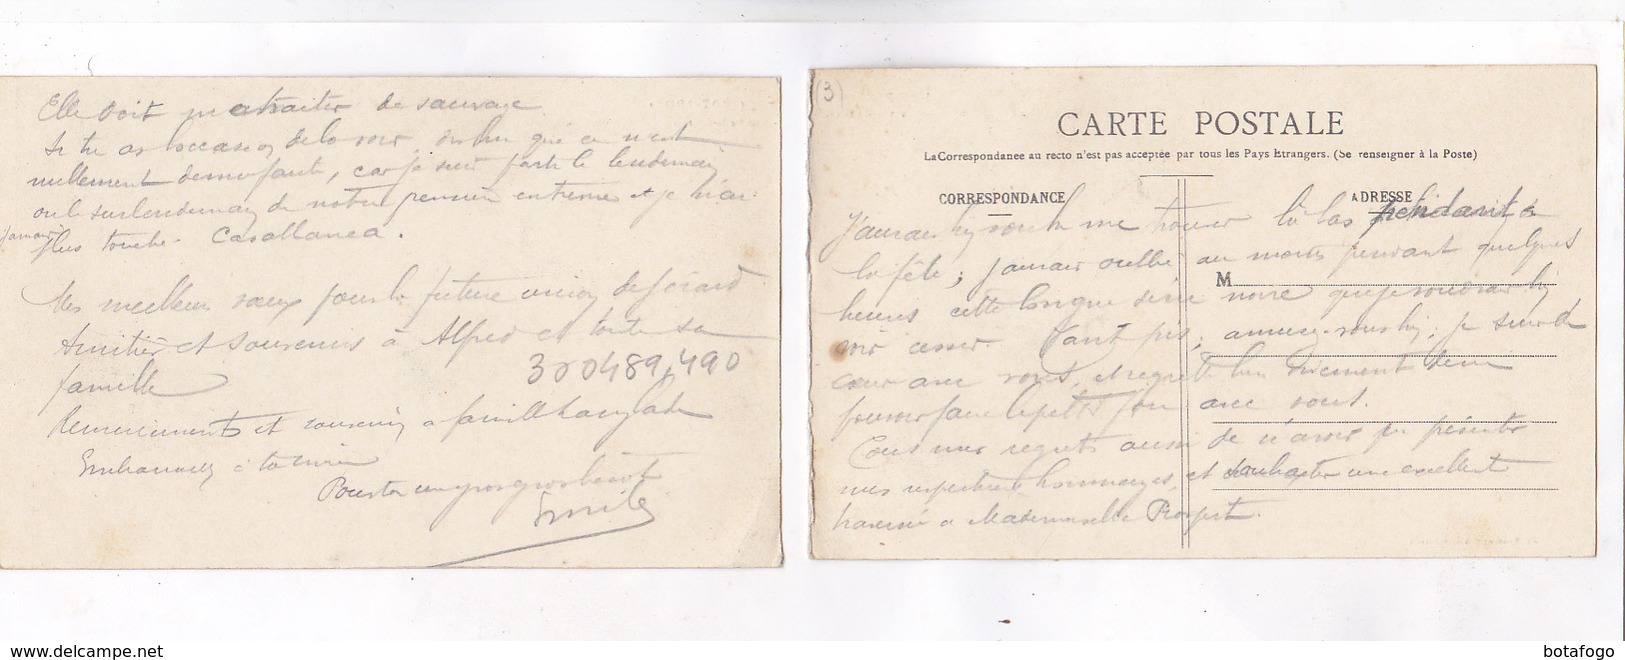 Elle doit me traiter de sauvage
Si tu as l'occasion de la voir, dis lui que ce n'est
nullement de ma faute, car je suis parti le lendemain
ou le surlendemain de notre dernière entrevue et je n'ai
jamais
plus touché Casablanca.
Mes meilleurs vœux pour la future union de Gérard
Amitiés et souvenirs à Alfred et toute sa
famille
300489,490
Remerciements et souvenir a famille
Embrasse à ta
Pour toi un gros gros baiser
Emile
(3)
CARTE POSTALE
La Correspondanee au recto n'est pas acceptée par tous les Pays Etrangers. (Se renseigner à la Poste)
CORRESPONDANCE
ADRESSE
J'aurais bien voulu me trouver là bas pendant
la fête; j'aurais oublié au moins pendant quelques
M
heures cette longue série noire que je voudrais bien
voir cesser. Tant pis, amusez-vous bien; je suis de
cœur avec vous, et regrette bien vivement de ne
pouvoir faire le petit fou avec vous.
Tous mes regrets aussi de n'avoir pu présenter
mes respectueux hommages, et souhaiter une excellente
traversée a Mademoiselle Prospert.
botafogo
www.delcampe.net